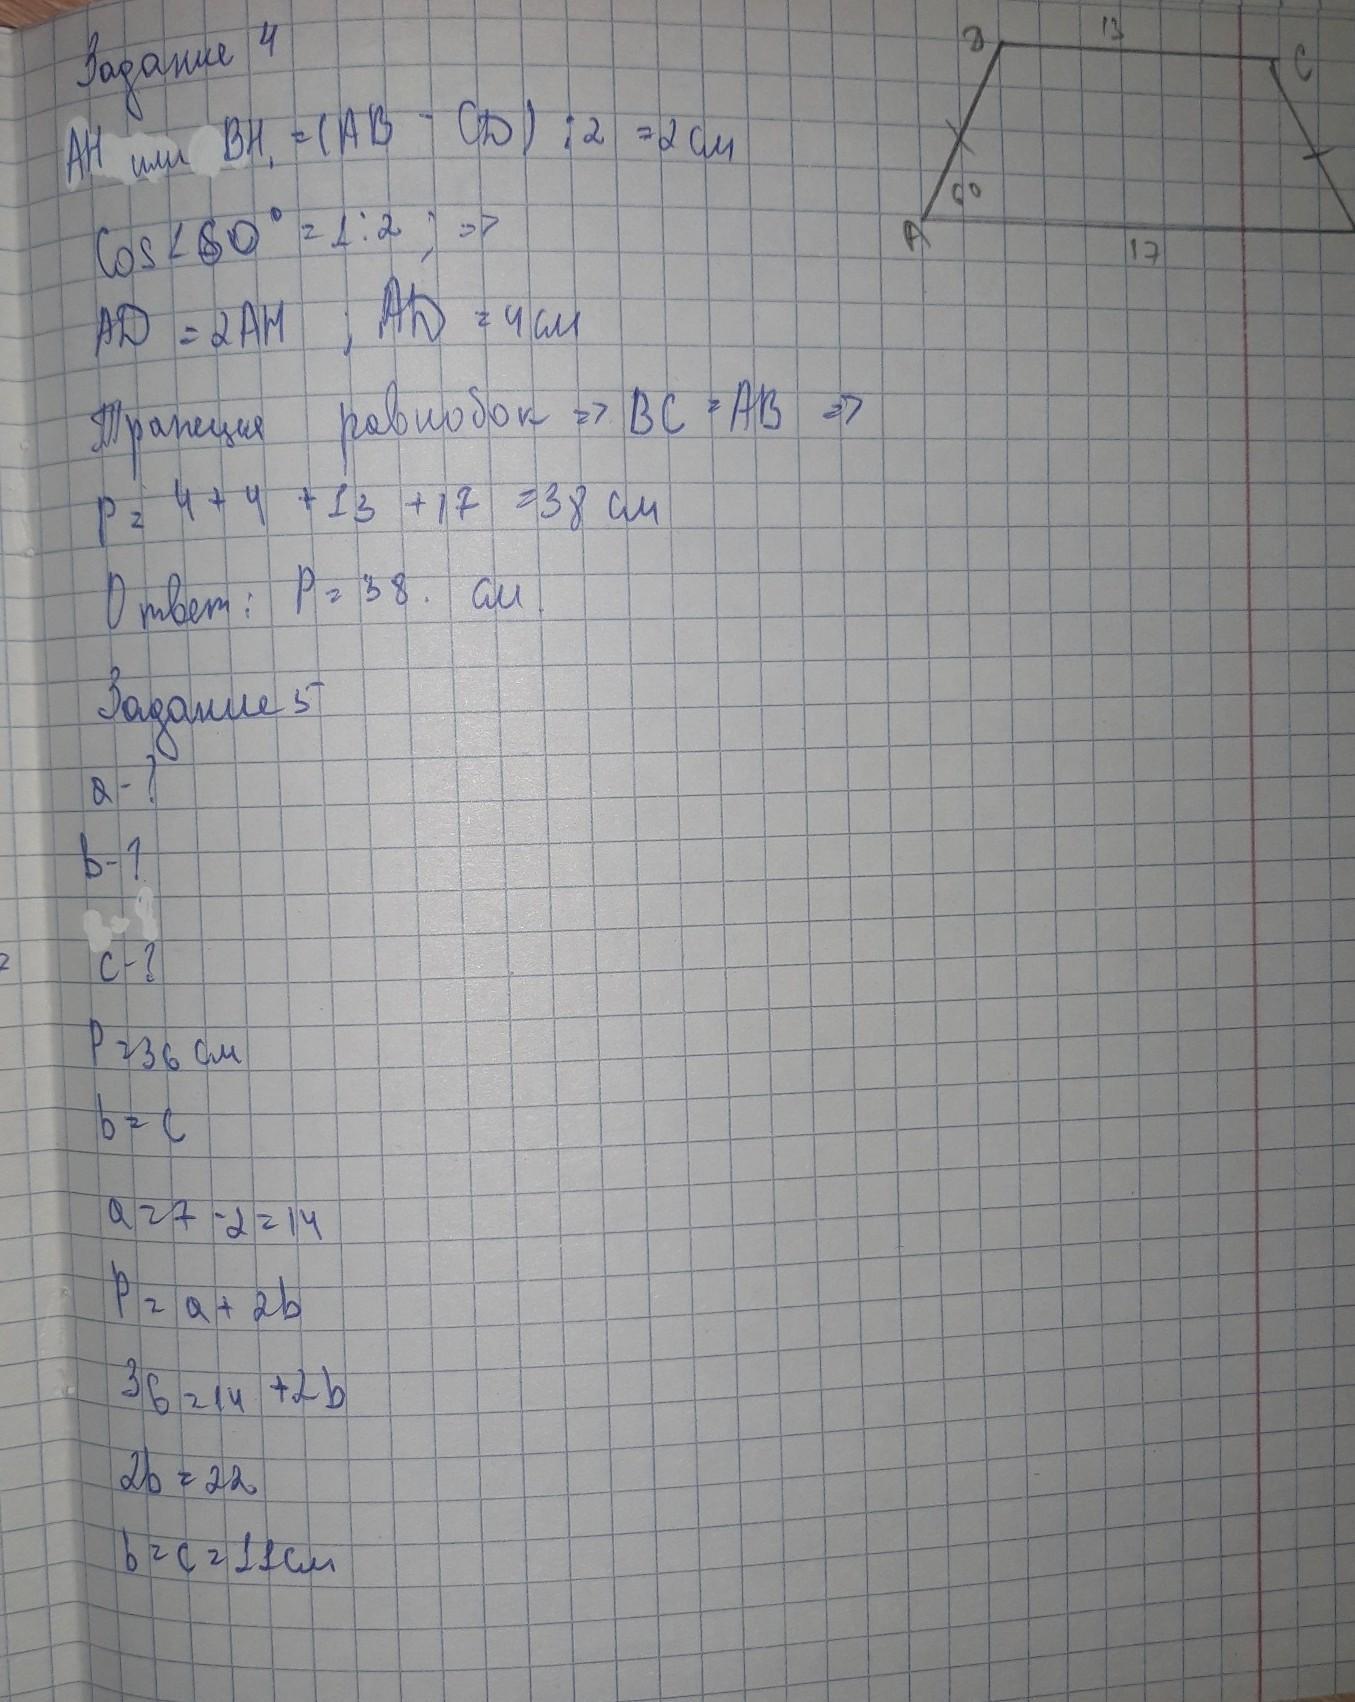 Задание 4
AH или BH₁ = (AB - CD) : 2 = 2 см
Cos<60° = 1:2 ; =>
AD = 2AH ; AD = 4 см
Трапеция равнобок => BC = AB =>
P = 4 + 4 + 13 + 17 = 38 см
Ответ: P = 38. см.
B 13 C
60
A 17
Задание 5
a - ?
b - ?
c - ?
2
P = 36 см
b = c
a = 7 · 2 = 14
P = a + 2b
36 = 14 + 2b
2b = 22
b = c = 11 см